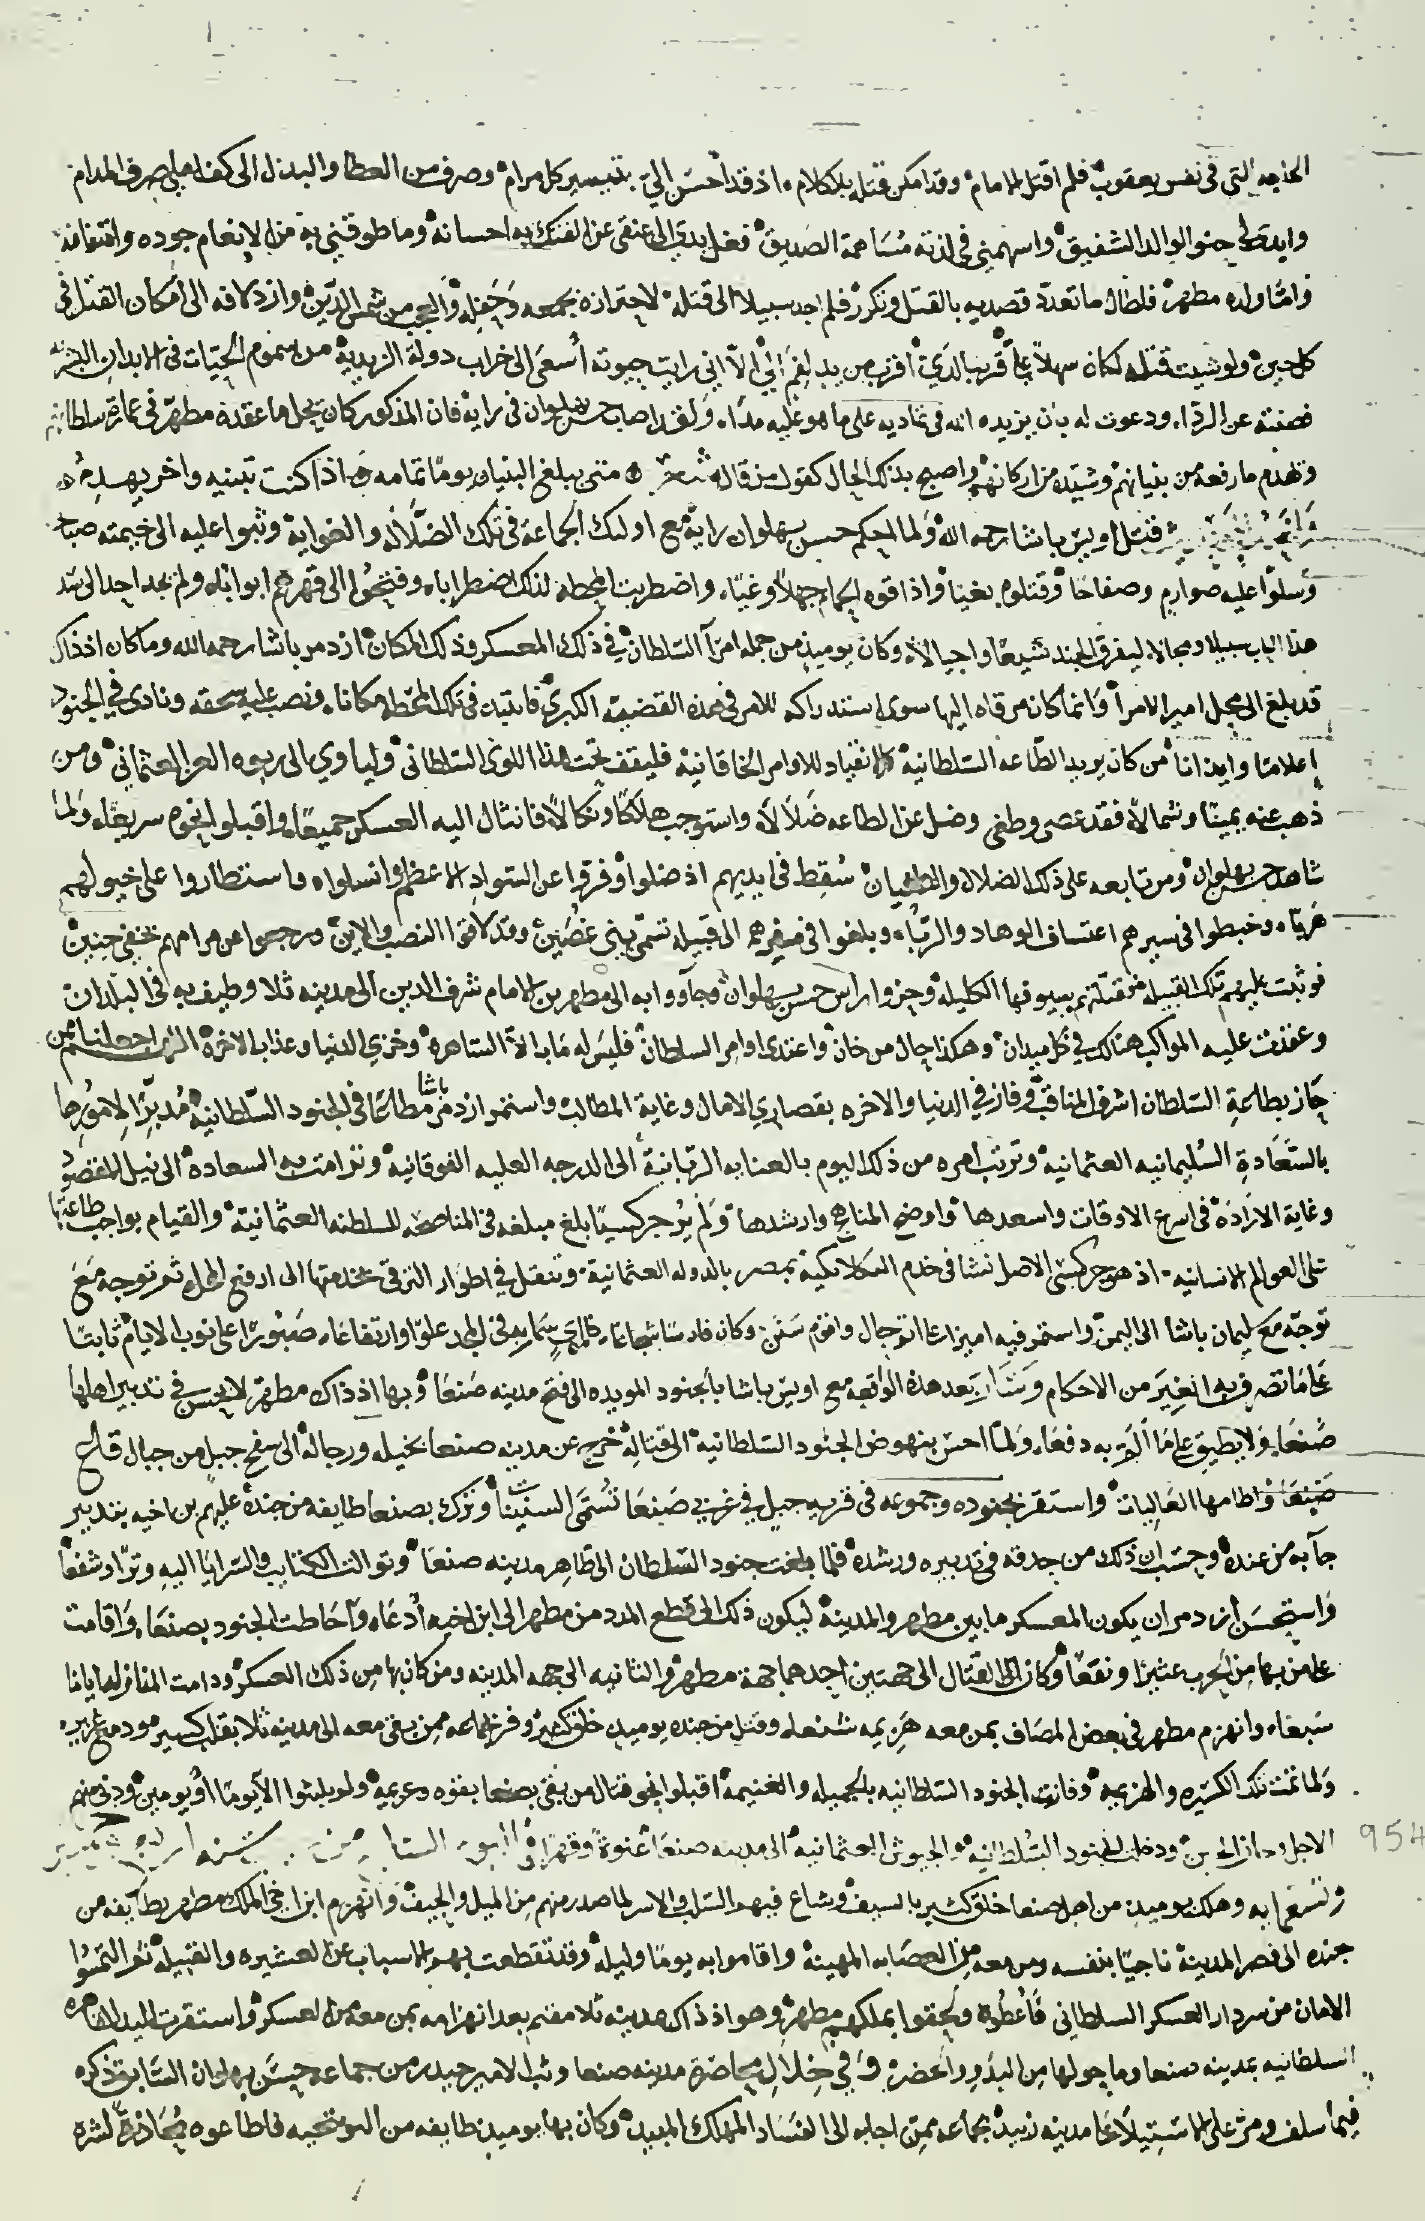 الحاجه التي في نفس يعقوب فلم اقتل الامام وقد امكن قتله بلا كلام اذ قد احسن اليّ بتيسير كل مرام وصرف من العطا والبذل الى كف املي صرف المدام
وابدى لي حنو الوالد الشفيق واسهمني في لذته مساهمة الصديق فغل يدي الى عنقي عن الفتك به احسانه وما طوقني به من الانعام جوده وامتنانه
وامّا ولده مطهر فلطال ما تعدد قصديه بالقتل وتكرر فلم اجد سبيلا الى قتله لاحترازه بجمعه وحفله والعجب من شمس الدين وازدلافه الى امكان القتل في
كل حين ولو شيت قتله لكان سهلا عليّ قريبا لديّ اقرب من يد لفم اليّ الّا اني رايت حيوته أسعى الى خراب دولة الزيدية من سموم الحيّات في الابدان البشريه
فصنته عن الرداء ودعوت له بان يزيده الله في تماديه على ما هو عليه مداء ولقد اصاب حسن بهلوان في رايه فان المذكور كان يحل ما عقده مطهر في عمارة سلطانهم
ويهدم ما رفعه من بنيانهم وشيّده من اركانهم واصبح بذلك الحال كقول من قال شعر متى يبلغ البنيان يوما تمامه اذا كنت تبنيه واخر يهدم
قتل اويس باشا رحمه الله ولما احكم حسن بهلوان رايه مع اولئك الجماعة في تلك الضلاله والغواية وثبوا عليه الى خيمته صباحا
وسلّوا عليه صوارم وصفاحا وقتلوه بغيا واذاقوه الحمام جهلا وغيّا واضطربت المحطه لذلك اضطرابا وفتحوا الى قهرهم ابوابا ولم يجد احد الى سد
هذا الباب سبيلا ومجالا ليفرق الجند شيعا واجيالا وكان يوميذ من جمله امرآ السلطان في ذلك المعسكر وذلك المكان ازدمر باشا رحمه الله وما كان اذ ذاك
قد بلغ الى محل امير الامرآ وانما كان مرقاه اليها سوى استدراكه للامر في هذه القضيه الكبرى فاتيت في تلك المحطه مكانا ونصب عليه سنجقه ونادى في الجنود
إعلاما وايذانا من كان يريد الطاعه السلطانية والانقياد للاوامر الخاقانية فليقف تحت هذا اللوى السلطاني وليأوي الى ربوه العز العثماني ومن
ذهب عنه يمينا وشمالا فقد عصى وطغى وضل عن الطاعه ضلالا واستوجب هلاكا ونكالا فانثال اليه العسكر جميعا واقبلوا نحوه سريعا ولما
شاهد حسن بهلوان ومن تابعه على ذلك الضلال والطغيان سُقط في ايديهم اذ ضلوا وفرقوا عن السواد الاعظم وانسلوا واستطاروا على خيولهم
هربا وخبطوا في سيرهم اعتساف الوهاد والربا وبلغوا في مفرهم الى قبيله تسمى بني غصين وقد لاقوا النصب والاين ورجعوا من مرامهم بخفي حنين
فوثبت عليهم تلك القبيله فقتلتهم بسيوفها الكليله وجزوا راس حسن بهلوان وجآووا به الى مطهر بن الامام شرف الدين الى مدينه ثلا وطيف به في البلدان
وعقدت عليه المواكب هنالك في كل ميدان وهكذا حال من خان واعتدى اوامر السلطان فليس له مابا الا الساهره وخزي الدنيا وعذاب الاخرة اللهم اجعلنا ممن
حاز بطاعة السلطان اشرف المناقب وفاز في الدنيا والاخره بقصارى الامال وغاية المطالب واستمر ازدمر باشا مطاعا في الجنود السلطانية مُدبرا لامورها
بالسعادة السليمانيه العثمانية وترتب امره من ذلك اليوم بالعنايه الربانية الى الدرجه العليه الفوقانيه وترامت به السعادة الى نيل المقصود
وغاية الارادة في اسرع الاوقات واسعدها واوضح المناهج وارشدها ولم يُر جركسيا بلغ مبلغه في المناصحه للسلطنه العثمانية والقيام بواجب طاعتها
على العوالم الانسانيه اذ هو جركسي الاصل نشا في خدم السلاطين بمصر بالدوله العثمانية وتنقل في اطوار الترقي بخدمتها الى ارفع المحل ثم توجه مع
توجّه مع سليمان باشا الى اليمن واستمر فيه اميرا على اتم حال واقوم سنن وكان فارسا شجاعا في المجد علوا وارتفاعا صبورا على نوب الايام ثابتا
على ما تصرف به الغِير من الاحكام وسار بعد هذه الواقعه مع اويس باشا بالجنود المويده الى فتح مدينه صنعا وبها اذ ذاك مطهر لا يحسن في تدبير اهلها
صُنعا ولا يطيق على ما ألمّ به دفعا ولما احسّ بنهوض الجنود السلطانيه الى قتاله خرج عن مدينه صنعا بخيله ورجاله الى سفح جبل من جبال قاع
صنعا واطامها العاليات واستقر بجنوده وجموعه في قريه جبل في غربي صنعا تسمى السنينات وترك بصنعا طايفه من جنده عليهم بن اخيه بتدبير
جآ به من عنده وحسب ان ذلك من حذقه في تدبيره ورشده فلما بلغت جنود السلطان الى ظاهر مدينه صنعا وتوالت الكتايب والسرايا اليه وترا وشفعا
واستحسن ازدمر ان يكون المعسكر ما بين مطهر والمدينه ليكون ذلك الى قطع المدد من مطهر الى ابن اخيه أدعا واحاطت الجنود بصنعا واقامت
على من بها من الحرب عثيرا ونقعا وكان القتال الى جهتين احدهما جهة مطهر والثانيه الى جهه المدينه ومن كان بها من ذلك العسكر ودامت المنازله اياما
سبعا وانهزم مطهر في بعض المصاف بمن معه هزيمه شنعا وقتل من جنده يوميذ خلق كثير وفر جماعه ممن بقي معه الى مدينه ثلا بقلب كسير ودمع غزير
ولما تمت تلك الكسره والهزيمه وفازت الجنود السلطانيه بالجميله والغنيمه اقبلوا نحو قتال من بقي بصنعا بقوه وعزيمه ولم يلبثوا الا يوما او يومين ودنى منهم
الاجل وحان الحين ودخلت الجنود السلطانية والجيوش العثمانيه الى مدينه صنعا عنوة وقهرا في اليوم السابع من سنه اربع وخمسين
954
وتسعمايه وهلك يوميذ من اهل صنعا خلق كثير بالسيف وشاع فيهم السلب والاسر لما صدر منهم من الميل والحيف وانهزم ابن اخي الملك مطهر بطايفه من
جنده الى قصر المدينه ناجيا بنفسه ومن معه من العصابه المهينة واقاموا به يوما وليله وقد تقطعت بهم الاسباب عن العشيره والقبيله ثم التمسوا
الامان من سردار العسكر السلطاني فاُعطوه ولحقوا بملكهم مطهر وهو اذ ذاك بمدينه ثلا مقيم بعد انهزامه بمن معه من العسكر واستقرت اليد القاهره
السلطانيه بمدينه صنعا وما حولها من البدو والحضر وفي خلال محاصرة مدينه صنعا وثب الامير حيدر من جماعه حسن بهلوان السابق ذكره
فيما سلف ومرّ على الاستيلآ على مدينه زبيد بجماعه ممن اجابه الى الفساد المهلك المبيد وكان بها يوميذ طايفه من اللوندجيه فاطاعوه لشره